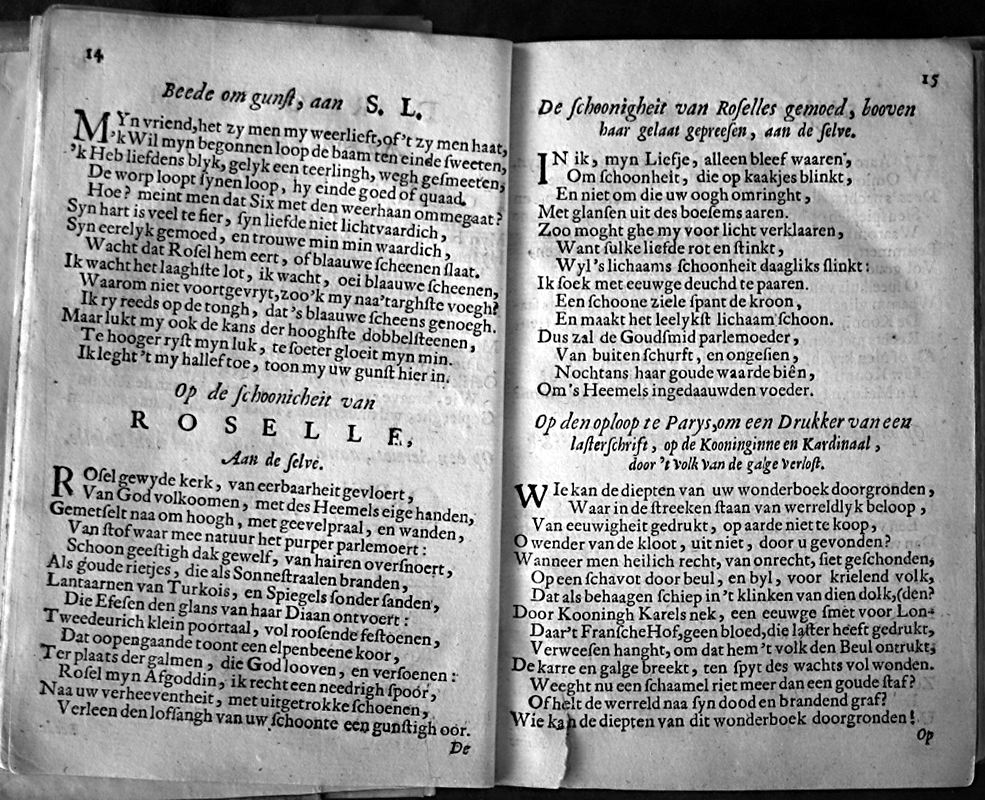 14
Beede om gunst, aan S. L.
MYn vriend, het zy men my weerlieft, of't zy men haat,
'k Wil myn begonnen loop de baam ten einde sweeten,
'k Heb liefdens blyk, gelyk een teerlingh, wegh gesmeeten,
De worp loopt synen loop, hy einde goed of quaad.
Hoe? meint men dat Six met den weerhaan ommegaat?
Syn hart is veel te fier, syn liefde niet lichtvaardich,
Syn eerelyk gemoed, en trouwe min min waardich,
Wacht dat Rosel hem eert, of blaauwe scheenen slaat.
Ik wacht het laaghste lot, ik wacht, oei blaauwe scheenen,
Waarom niet voortgevryt, zoo'k my naa'targhste voegh?
Ik ry reeds op de tongh, dat's blaauwe scheens genoegh.
Maar lukt my ook de kans der hooghste dobbelsteenen,
Te hooger ryst myn luk, te soeter gloeit myn min.
Ik leght 't my hallef toe, toon my uw gunst hier in.
Op de schoonicheit van
ROSELLE,
Aan de selve.
ROsel gewyde kerk, van eerbaarheit gevloert,
Van God volkoomen, met des Heemels eige handen,
Gemetselt naa om hoogh, met geevelpraal, en wanden,
Van stof waar mee natuur het purper parlemoert:
Schoon geestigh dak gewelf, van hairen oversnoert,
Als goude rietjes, die als Sonnestraalen branden,
Lantaarnen van Turkois, en Spiegels sonder sanden,
Die Efesen den glans van haar Diaan ontvoert:
Tweedeurich klein poortaal, vol roosende festoenen,
Dat oopengaande toont een elpenbeene koor,
Ter plaats der galmen, die God looven, en versoenen:
Rosel myn Afgoddin, ik recht een needrigh spoor,
Naa uw verheeventheit, met uitgetrokke schoenen,
Verleen den loffangh van uw schoonte een gunstigh oor.
De
15
De schoonigheit van Roselles gemoed, booven
haar gelaat gepreesen, aan de selve.
IN ik, myn Liefje, alleen bleef waaren,
Om schoonheit, die op kaakjes blinkt,
En niet om die uw oogh omringht,
Met glansen uit des boesems aaren.
Zoo moght ghe my voor licht verklaaren,
Want sulke liefde rot en stinkt,
Wyl 's lichaams schoonheit daagliks slinkt:
Ik soek met eeuwge deuchd te paaren.
Een schoone ziele spant de kroon,
En maakt het leelykst lichaam schoon.
Dus zal de Goudsmid parlemoeder,
Van buiten schurft, en ongesien,
Nochtans haar goude waarde biên,
Om 's Heemels ingedaauwden voeder.
Op den oploop te Parys, om een Drukker van een
lasterschrift, op de Kooninginne en Kardinaal,
door 't Volk van de galge verlost.
WIe kan de diepten van uw wonderboek doorgronden,
Waar in de streeken staan van werreldlyk beloop,
Van eeuwigheit gedrukt, op aarde niet te koop,
O wender van de kloot, uit niet, door u gevonden?
Wanneer men heilich recht, van onrecht, siet geschonden,
Op een schavot door beul, en byl, voor krielend volk,
Dat als behaagen schiep in 't klinken van dien dolk, (den?
Door Kooningh Karels nek, een eeuwge smet voor Lon-
Daar't Fransche Hof, geen bloed, die laster heeft gedrukt,
Verweesen hanght, om dat hem 't volk den Beul ontrukt,
De karre en galge breekt, ten spyt des wachts vol wonden.
Weeght nu een schaamel riet meer dan een goude staf?
Of helt de werreld naa syn dood en brandend graf?
Wie kan de diepten van dit wonderboek doorgronden!
Op